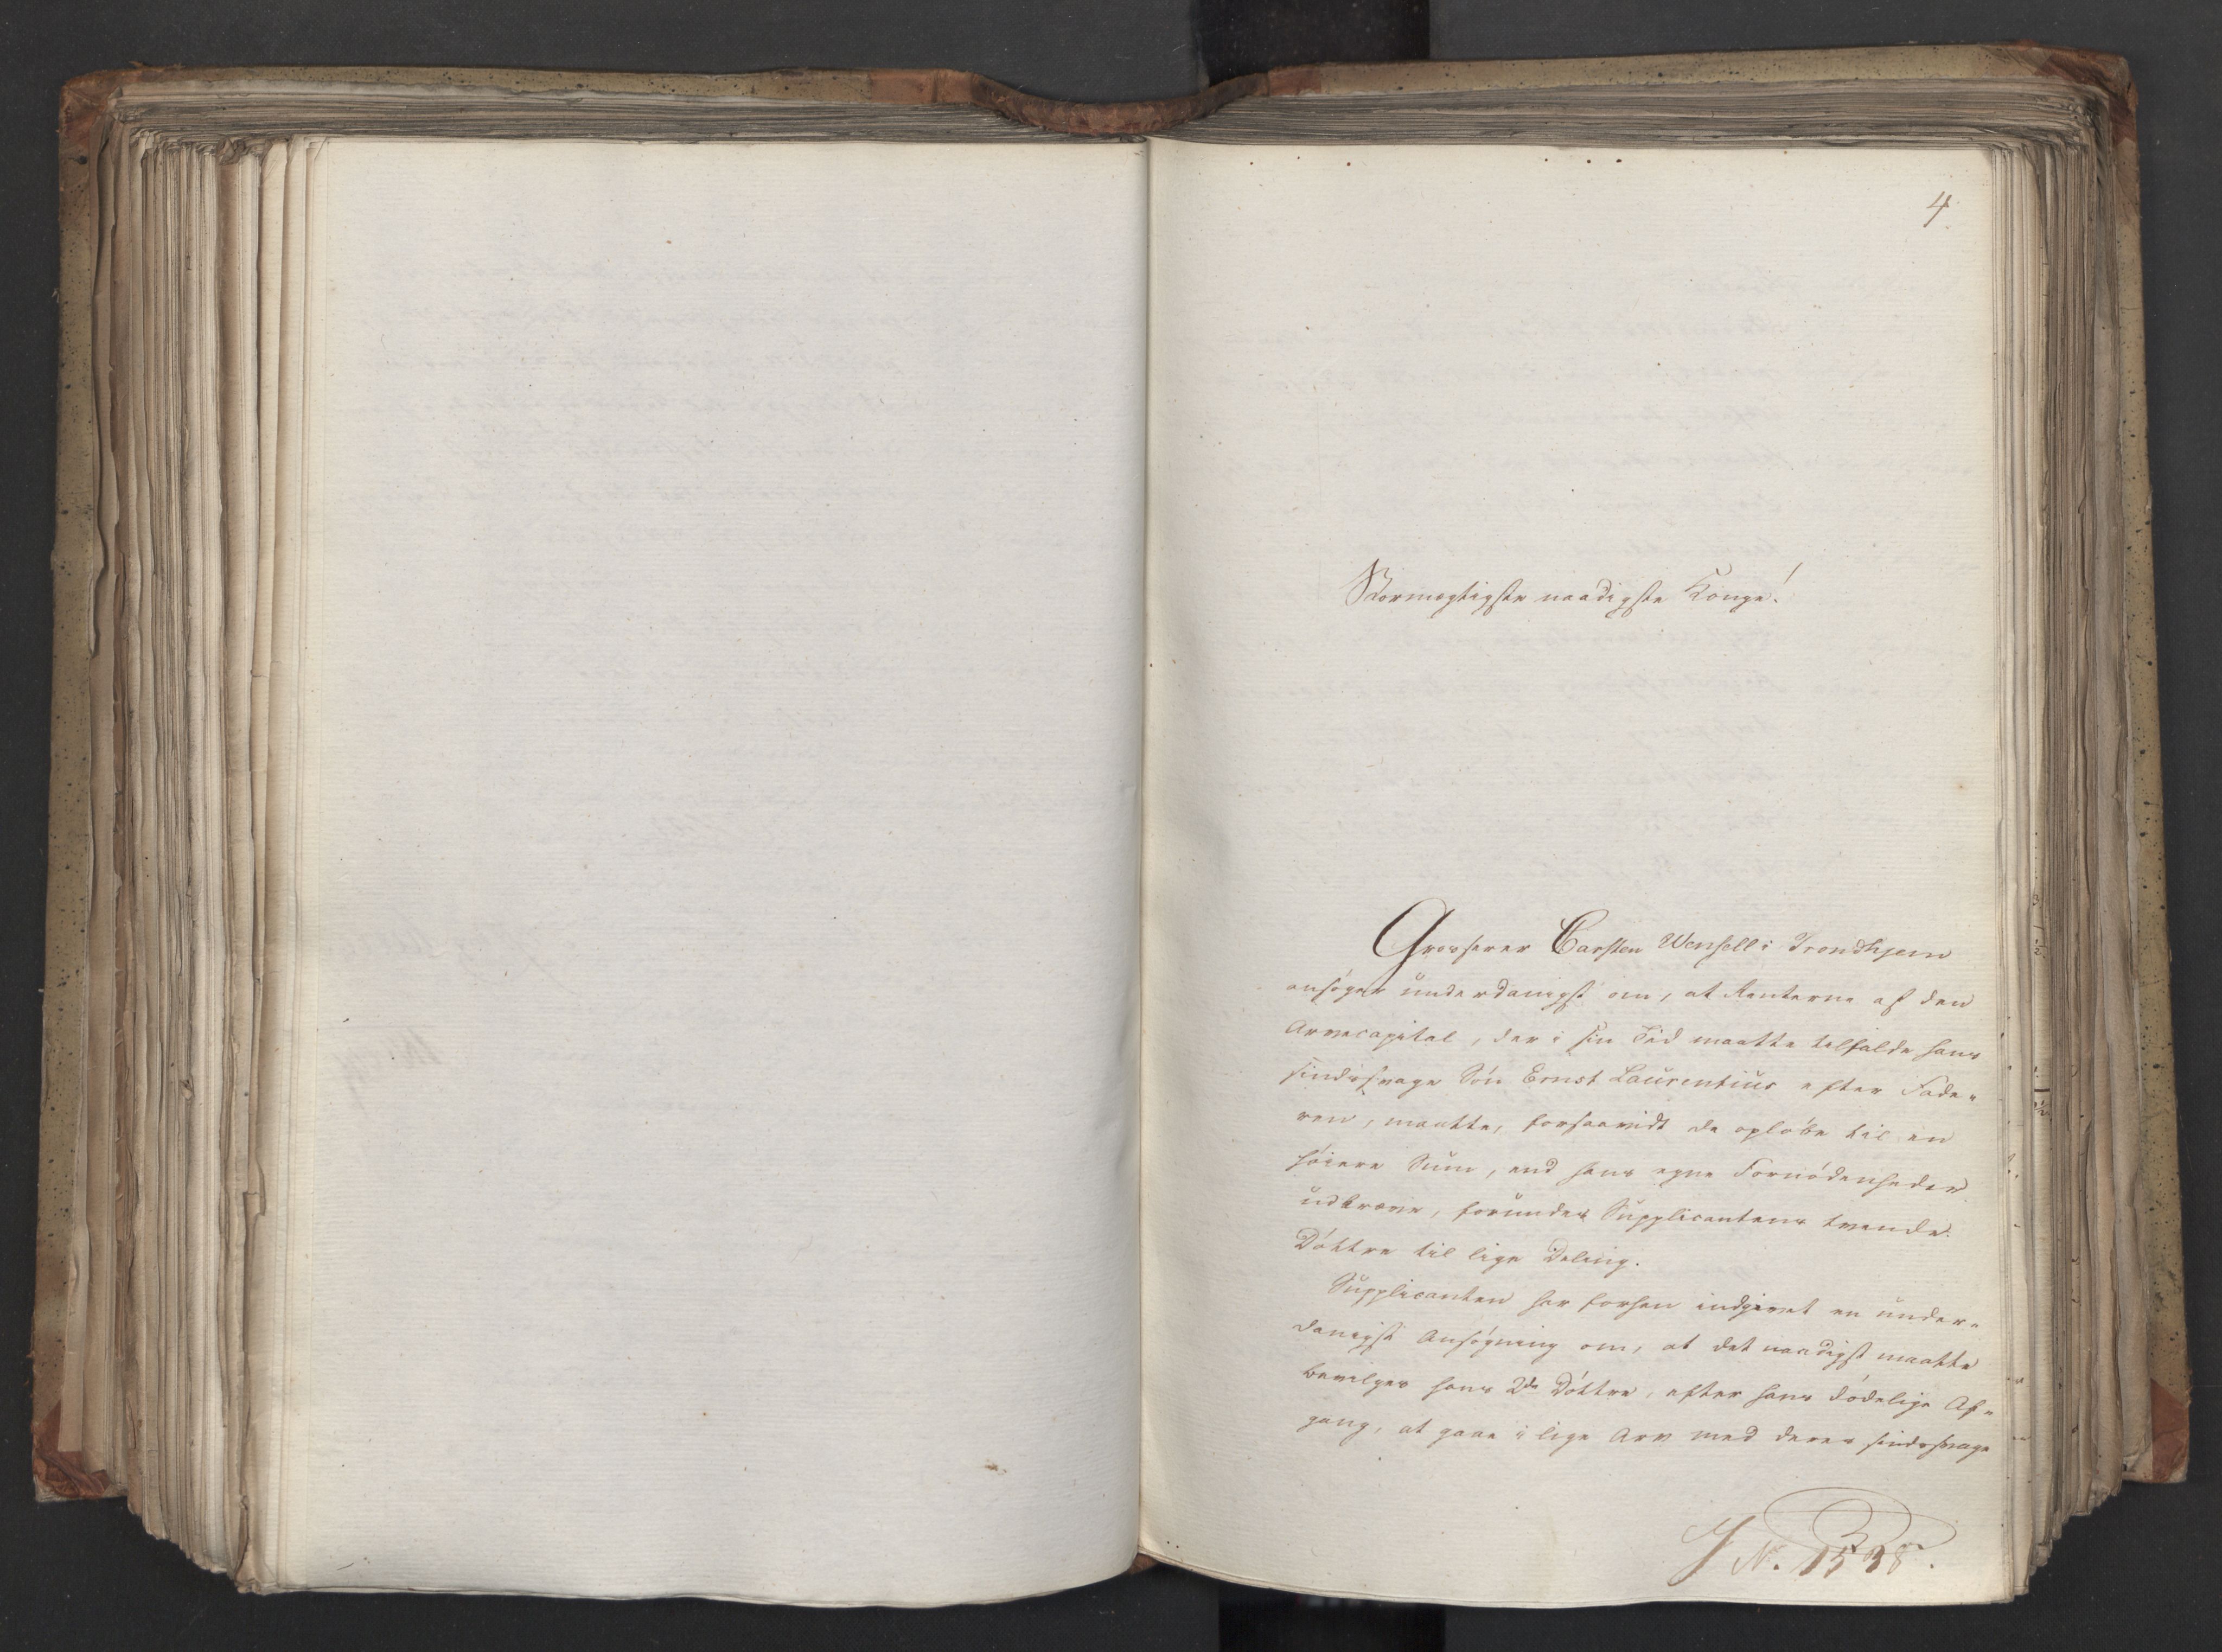 4
Stormægtigste naadigste Konge!
Grosserer Carsten Wensell i Trondhjem
ansøger underdanigst om, at Renterne af den
Arvecapital, der i sin Tid maatte tilfalde hans
sindssvage Søn Ernst Laurentius efter Fade-
ren, maatte, forsaavidt de opløbe til en
høiere Sum, end hans egne Fornødenheder
udkræve, forundes Supplicantens tvende
Døttre til lige Deling.
Supplicanten har forhen indgivet en under-
danigst Ansøgning om, at det naadigst maatte
bevilges hans 2de Døttre, efter hans dødelige Af-
gang, at gaae i lige Arv med deres sindssvage
J N. 1538.